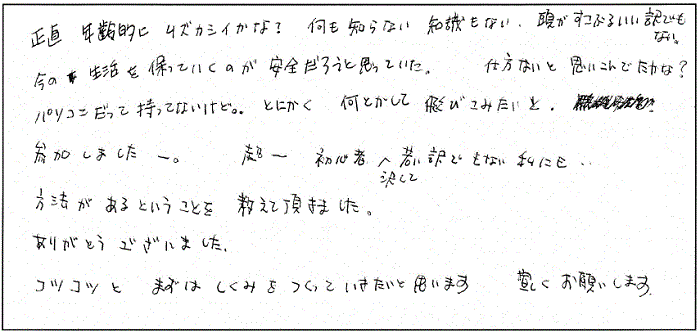 正直 年齢的に ムズカシイかな？ 何も知らない 知識もない、頭がすこぶるいい訳でもない。
今の 生活を保っていくのが安全だろうと思っていた。 仕方ないと思いこんでたかな？
パソコンだって持ってないけど。。とにかく 何とかして 飛びこみたいと、
参加しましたー。 超ー 初心者へ 決して若い訳でもない私にも‥
方法があるということを 教えて頂きました。
ありがとうございました。
コツコツと まずは しくみをつくっていきたいと思います 宜しくお願いします。